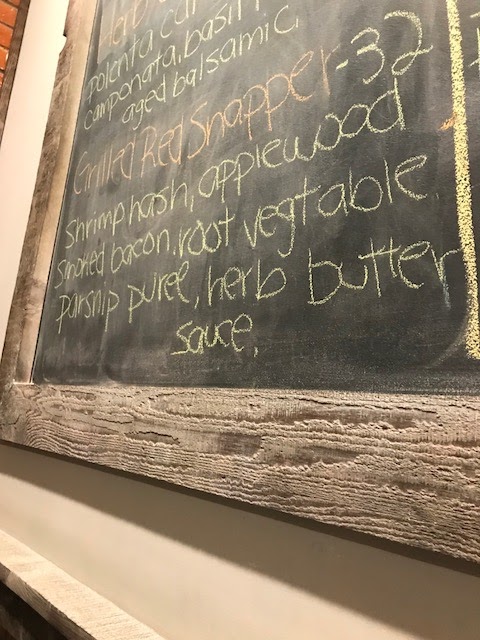 Herb
polenta ca
camponata, basil
aged balsamic.
Grilled Red Snapper - 32
shrimp hash, applewood
smoked bacon, root vegtable,
parsnip puree, herb butter
sauce.